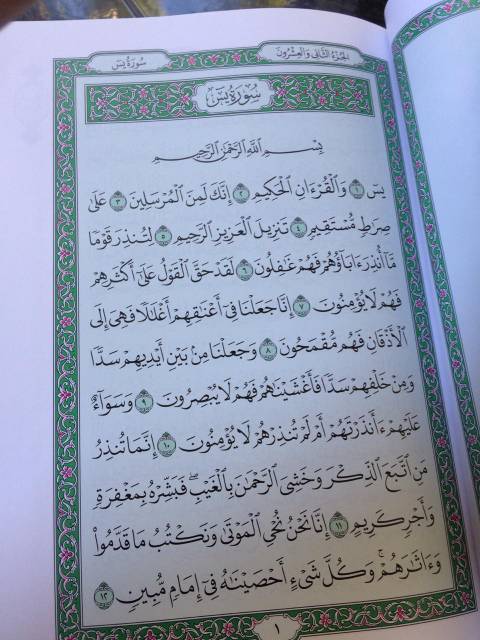 الجزء الثاني والعشرون
سورة يس
سورة يس
بسم الله الرحمن الرحيم
يسٓ ١ وَٱلْقُرْءَانِ ٱلْحَكِيمِ ٢ إِنَّكَ لَمِنَ ٱلْمُرْسَلِينَ ٣ عَلَىٰ
صِرَٰطٍ مُّسْتَقِيمٍ ٤ تَنزِيلَ ٱلْعَزِيزِ ٱلرَّحِيمِ ٥ لِتُنذِرَ قَوْمًا
مَّآ أُنذِرَ ءَابَآؤُهُمْ فَهُمْ غَٰفِلُونَ ٦ لَقَدْ حَقَّ ٱلْقَوْلُ عَلَىٰٓ أَكْثَرِهِمْ
فَهُمْ لَا يُؤْمِنُونَ ٧ إِنَّا جَعَلْنَا فِىٓ أَعْنَٰقِهِمْ أَغْلَٰلًا فَهِىَ إِلَى
ٱلْأَذْقَانِ فَهُم مُّقْمَحُونَ ٨ وَجَعَلْنَا مِنۢ بَيْنِ أَيْدِيهِمْ سَدًّا
وَمِنْ خَلْفِهِمْ سَدًّا فَأَغْشَيْنَٰهُمْ فَهُمْ لَا يُبْصِرُونَ ٩ وَسَوَآءٌ
عَلَيْهِمْ ءَأَنذَرْتَهُمْ أَمْ لَمْ تُنذِرْهُمْ لَا يُؤْمِنُونَ ١٠ إِنَّمَا تُنذِرُ
مَنِ ٱتَّبَعَ ٱلذِّكْرَ وَخَشِىَ ٱلرَّحْمَٰنَ بِٱلْغَيْبِ ۖ فَبَشِّرْهُ بِمَغْفِرَةٍ
وَأَجْرٍ كَرِيمٍ ١١ إِنَّا نَحْنُ نُحْىِ ٱلْمَوْتَىٰ وَنَكْتُبُ مَا قَدَّمُوا۟
وَءَاثَٰرَهُمْ ۚ وَكُلَّ شَىْءٍ أَحْصَيْنَٰهُ فِىٓ إِمَامٍ مُّبِينٍ ١٢
١